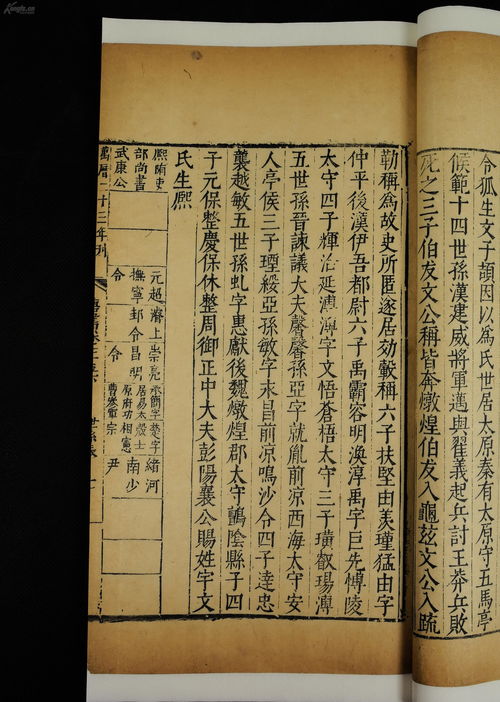 令狐生文子頡因以爲氏世居太原秦有太原守五馬亭
候範十四世孫漢建威將軍邁與翟義起兵討王莽兵敗
死之三子伯友文公稱皆奔燉煌伯友入龜玆文公入疏
勒稱爲故吏所匿遂居効穀稱六子扶堅由羙瑾猛由字
仲平後漢伊吾都尉六子禹霸容明渙淳禹字巨先博陵
太守四子輝洽延溥溥字文悟蒼梧太守三子璜叡瑒溥
五世孫晉諫議大夫馨馨孫亞字就胤前涼西海太守安
人亭侯三子瓕綏亞孫敏字永昌前涼鳴沙令四子逵忠
襲越敏五世孫虬字惠獻後魏燉煌郡太守鸇陰縣子四
子元保整慶保休整周御正中大夫彭陽襄公賜姓字文
氏生熙
熙隋吏
部尚書
武康公
元超
撫寧
令
濟上
邽令
崇亮
昌明
令
承簡字
居易太
原府功
曹
楚字
殼士
相憲
宗
緒河
南少
尹
萬曆二十三年刊